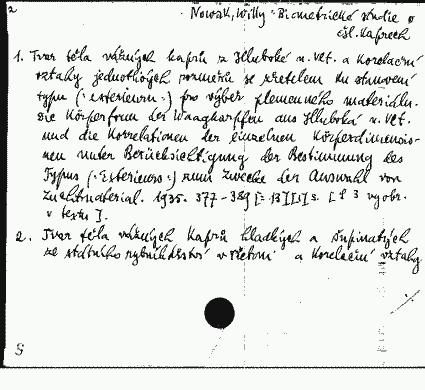 2
Nowak, Willy : Biometrické studie o
čsl. kaprech
1. Tvar těla vážných kaprů z Hluboké n. Vlt. a korelační
vztahy jednotlivých rozměrů se zřetelem ku stanovení
typu (: exterieuru :) pro výběr plemenného materiálu.
Die Körperform der Waagkarpfen aus Hluboká n. Vlt.
und die Korrelationen der einzelnen Körperdimensio-
nen unter Berücksichtigung der Bestimmung des
Typus (: Exterieurs :) zum Zwecke der Auswahl von
Zuchtmaterial. 1935. 377 - 389 [= 13] s.
v textu].
2. Tvar těla vážných kaprů hladkých a šupinatých
ze státního rybníkářství v a korelační vztahy